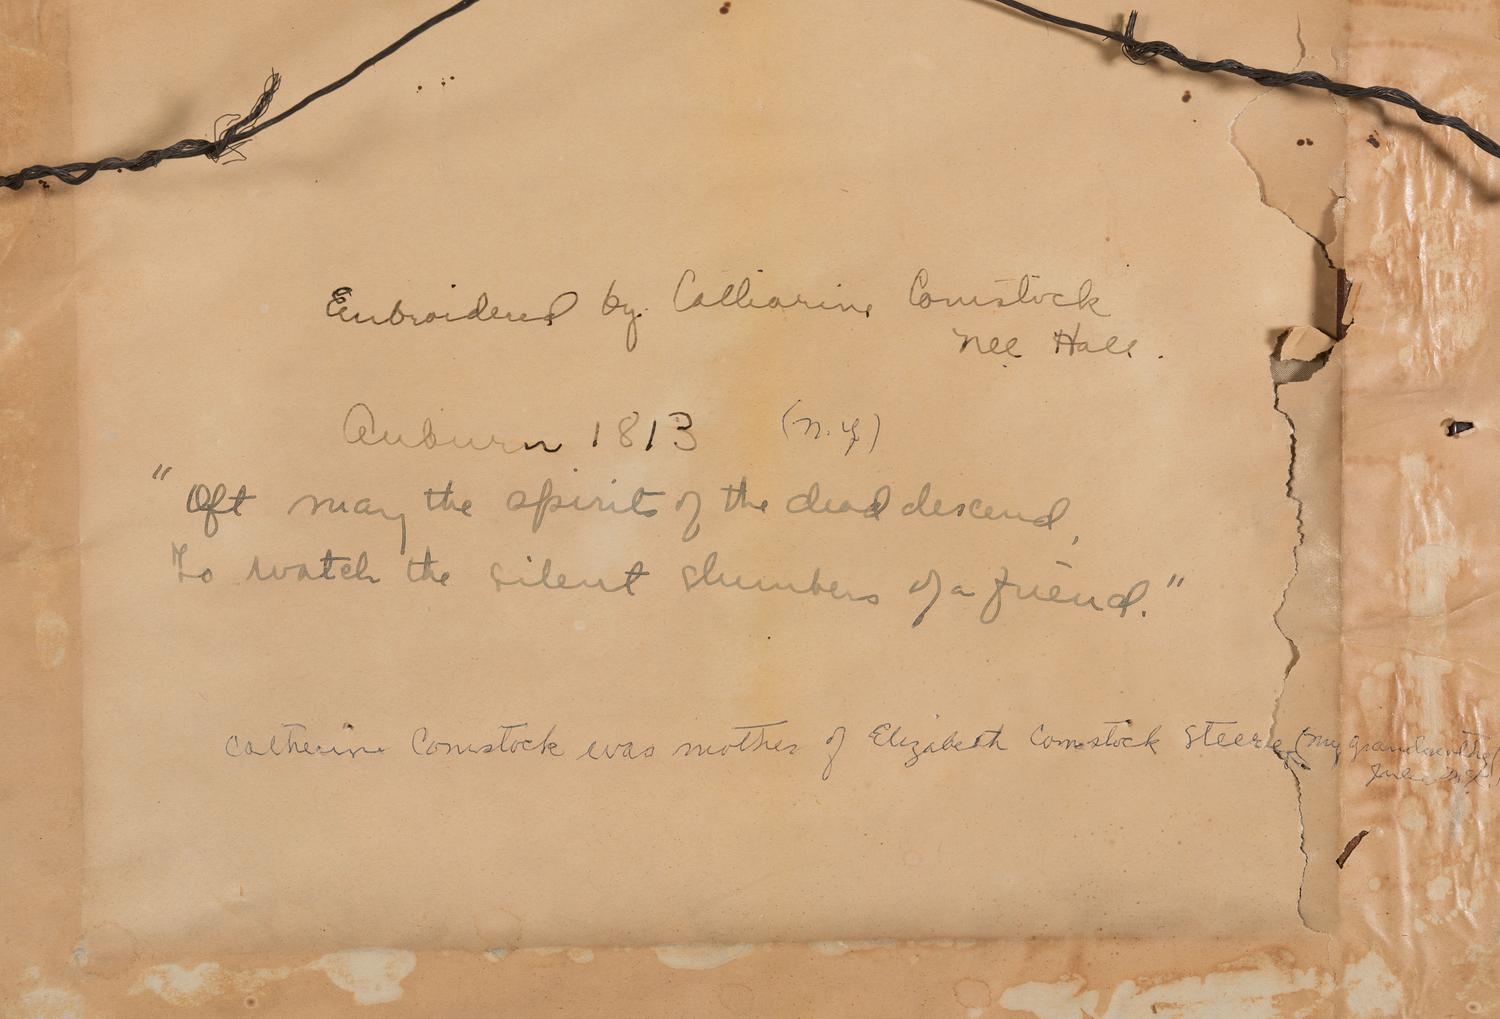 Embroidered by Catharine Comstock
Nee Hall.
Auburn 1813 (N.Y)
"Oft may the spirits of the dead descend,
To watch the silent slumbers of a friend."
Catherine Comstock was mother of Elizabeth Comstock Steere (my grandmother